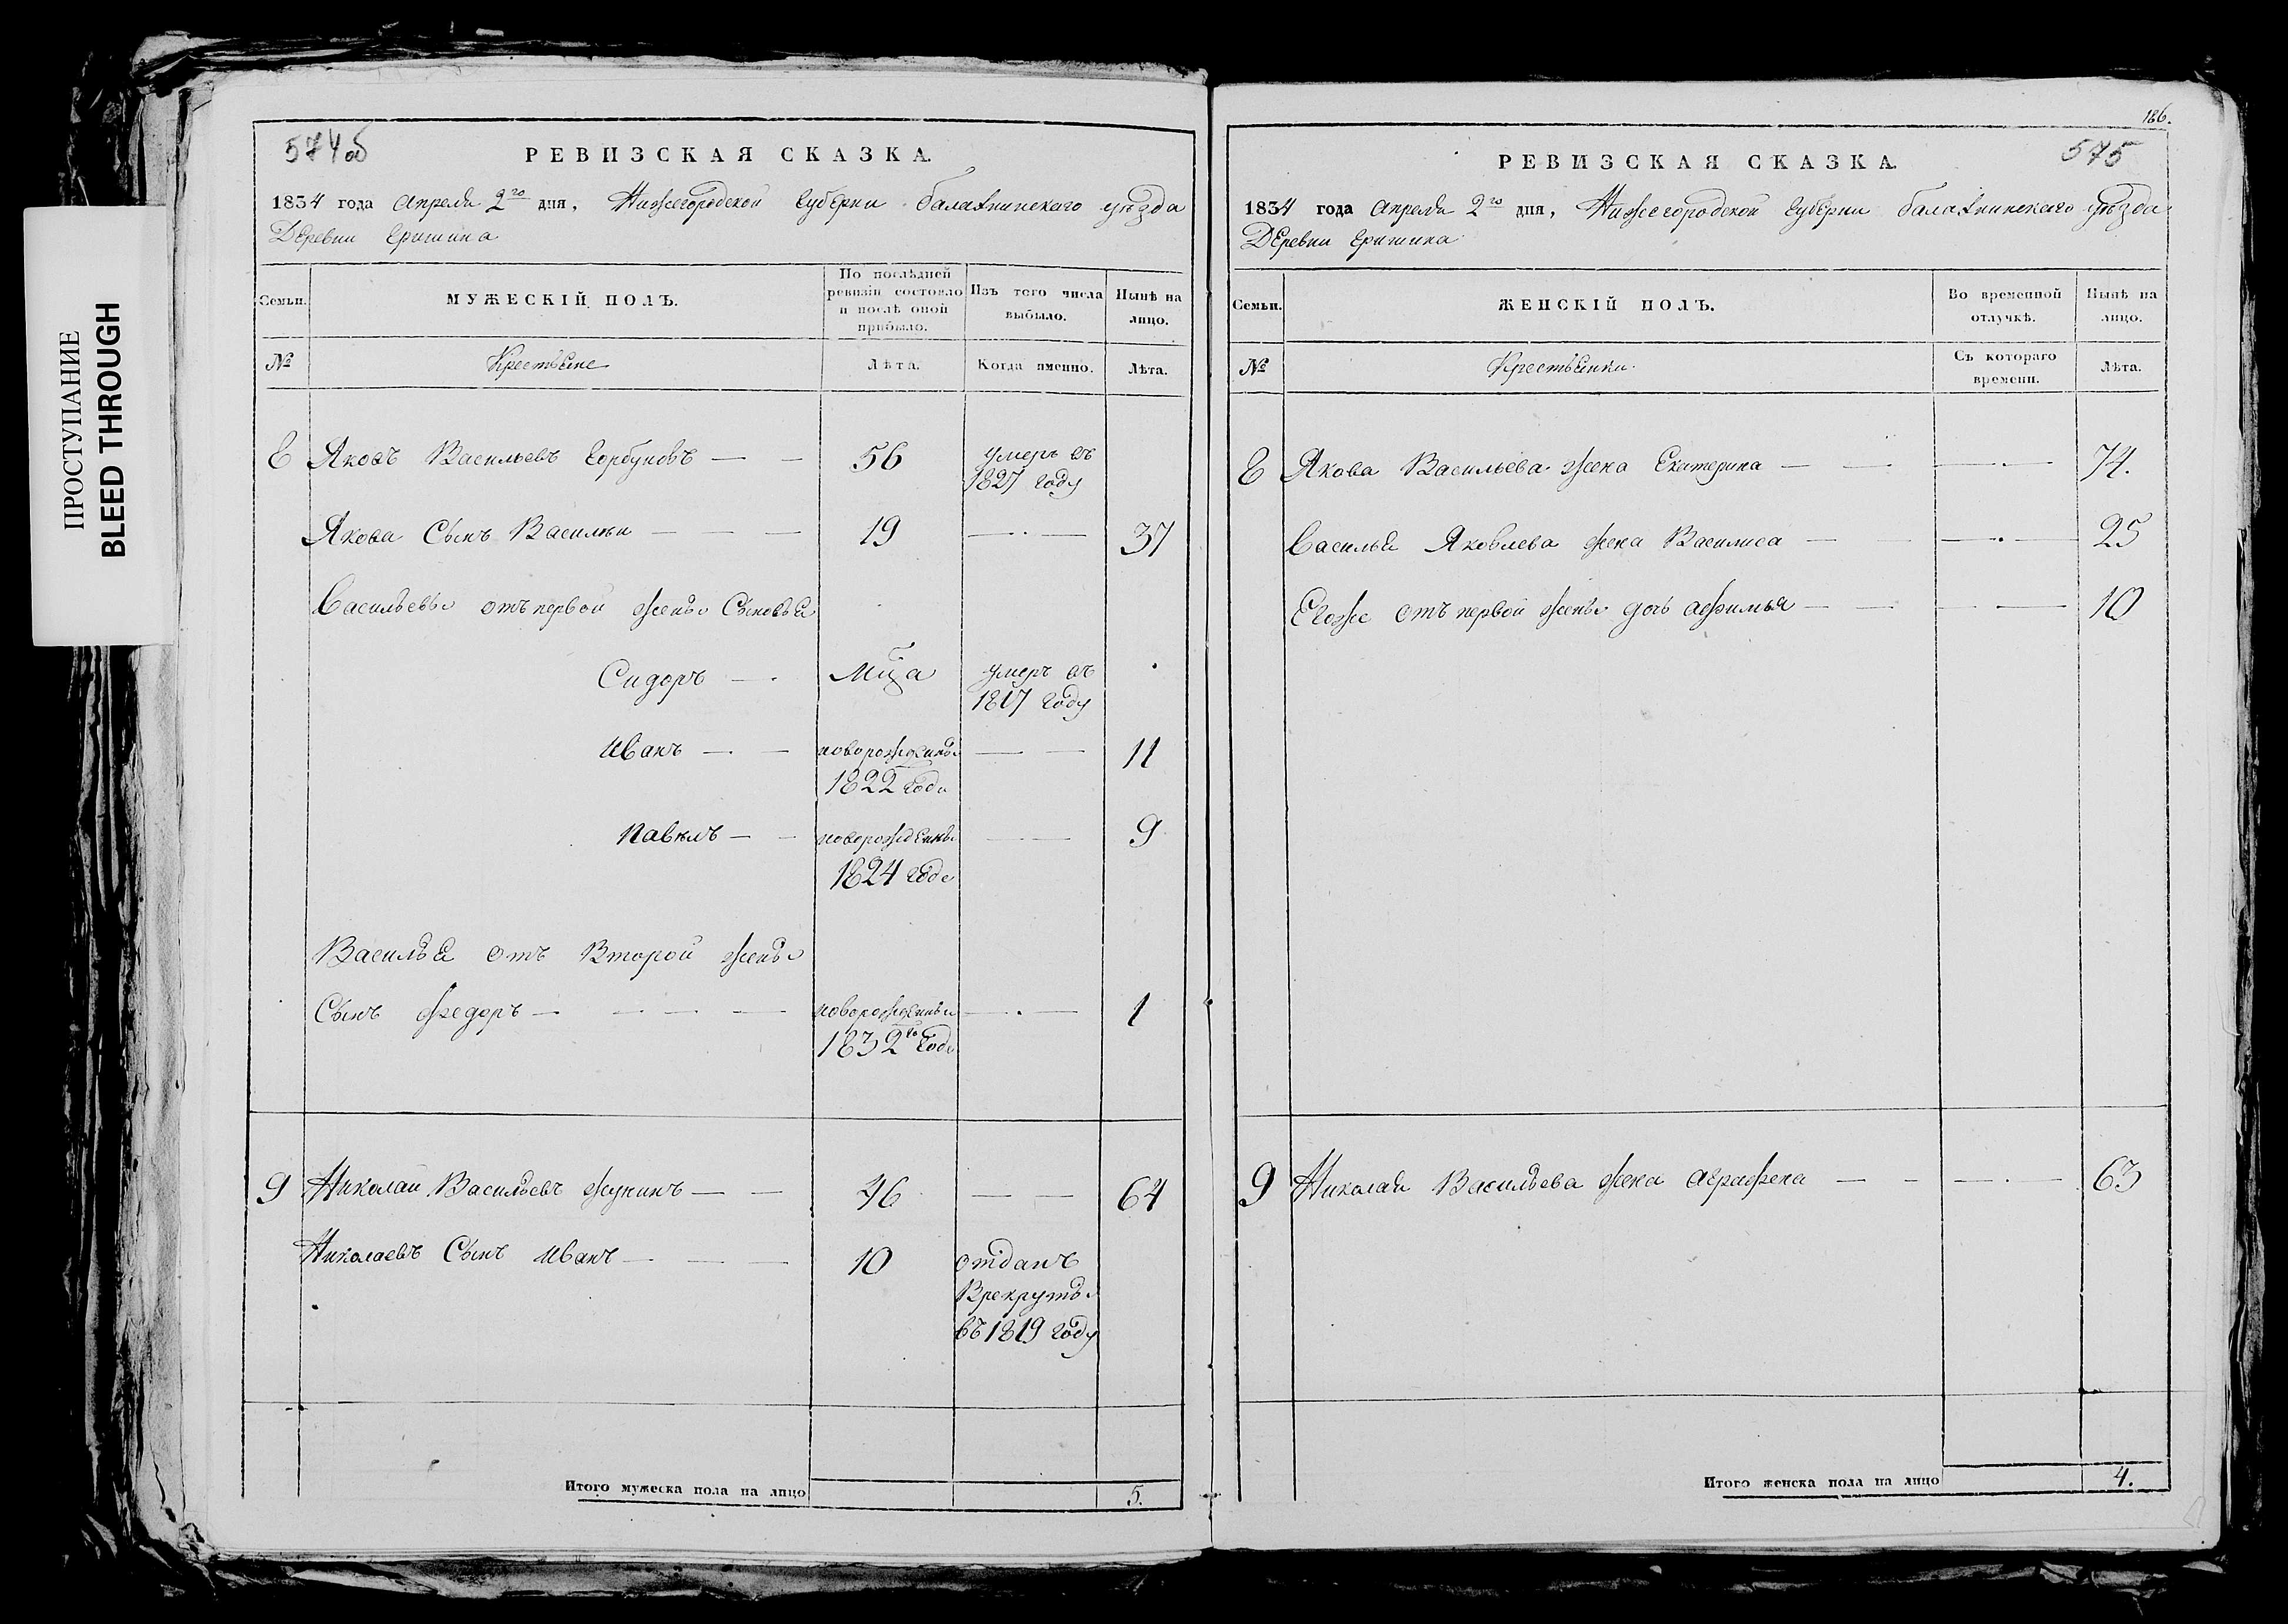 ПРОСТУПАНИЕ
BLEED THROUGH
574об
РЕВИЗСКАЯ СКАЗКА.
1834 года Апреля 2го дня, Нижегородской губерни балахнинскаго уѣзда
Деревни
Семьи.
МУЖЕСКІЙ ПОЛЪ.
По послѣдней ревизіи состояло и послѣ оной прибыло.
Изъ того числа выбыло.
Нынѣ на лицо.
№
Крестьяне
Лѣта.
Когда именно.
Лѣта.
8 Яковъ Васильевъ Горбуновъ — — 56 умеръ въ
1827 году
Якова Сынъ Василѣи — — — 19 — . — 37
Васильевы отъ первой жены Сыновья
Сидоръ — . Мца умеръ въ .
1817 году
Иванъ — . — новорожденны — — 11
1822 года
Павелъ — — новорожденны — — 9
1824 года
Василья отъ Второй жены
Сынъ Федоръ — — — — новорожденны — . — 1
1832го года
9 Николаи Васильевъ Жунинъ — — 46 — — 64
Николаевъ Сынъ Иванъ — — — 10 отданъ
Врекруты
въ 1819 году
Итого мужеска пола на лицо 5.
186.
575
РЕВИЗСКАЯ СКАЗКА.
1834 года Апреля 2го дня, Нижегородской губерни балахнинскаго уѣзда
Деревни
Семьи.
ЖЕНСКІЙ ПОЛЪ.
Во временной отлучкѣ.
Нынѣ на лицо.
№
Крестьянки.
Съ котораго времени.
Лѣта.
8 Якова Васильева жена Екатерина — — — . — 74.
Василья Яковлева жена Василиса — — — . — 25
Егоже отъ первой жены дочь афимья — — — — 10
9 Николая Васильева жена аграфена — — — . — 63
Итого женска пола на лицо 4.